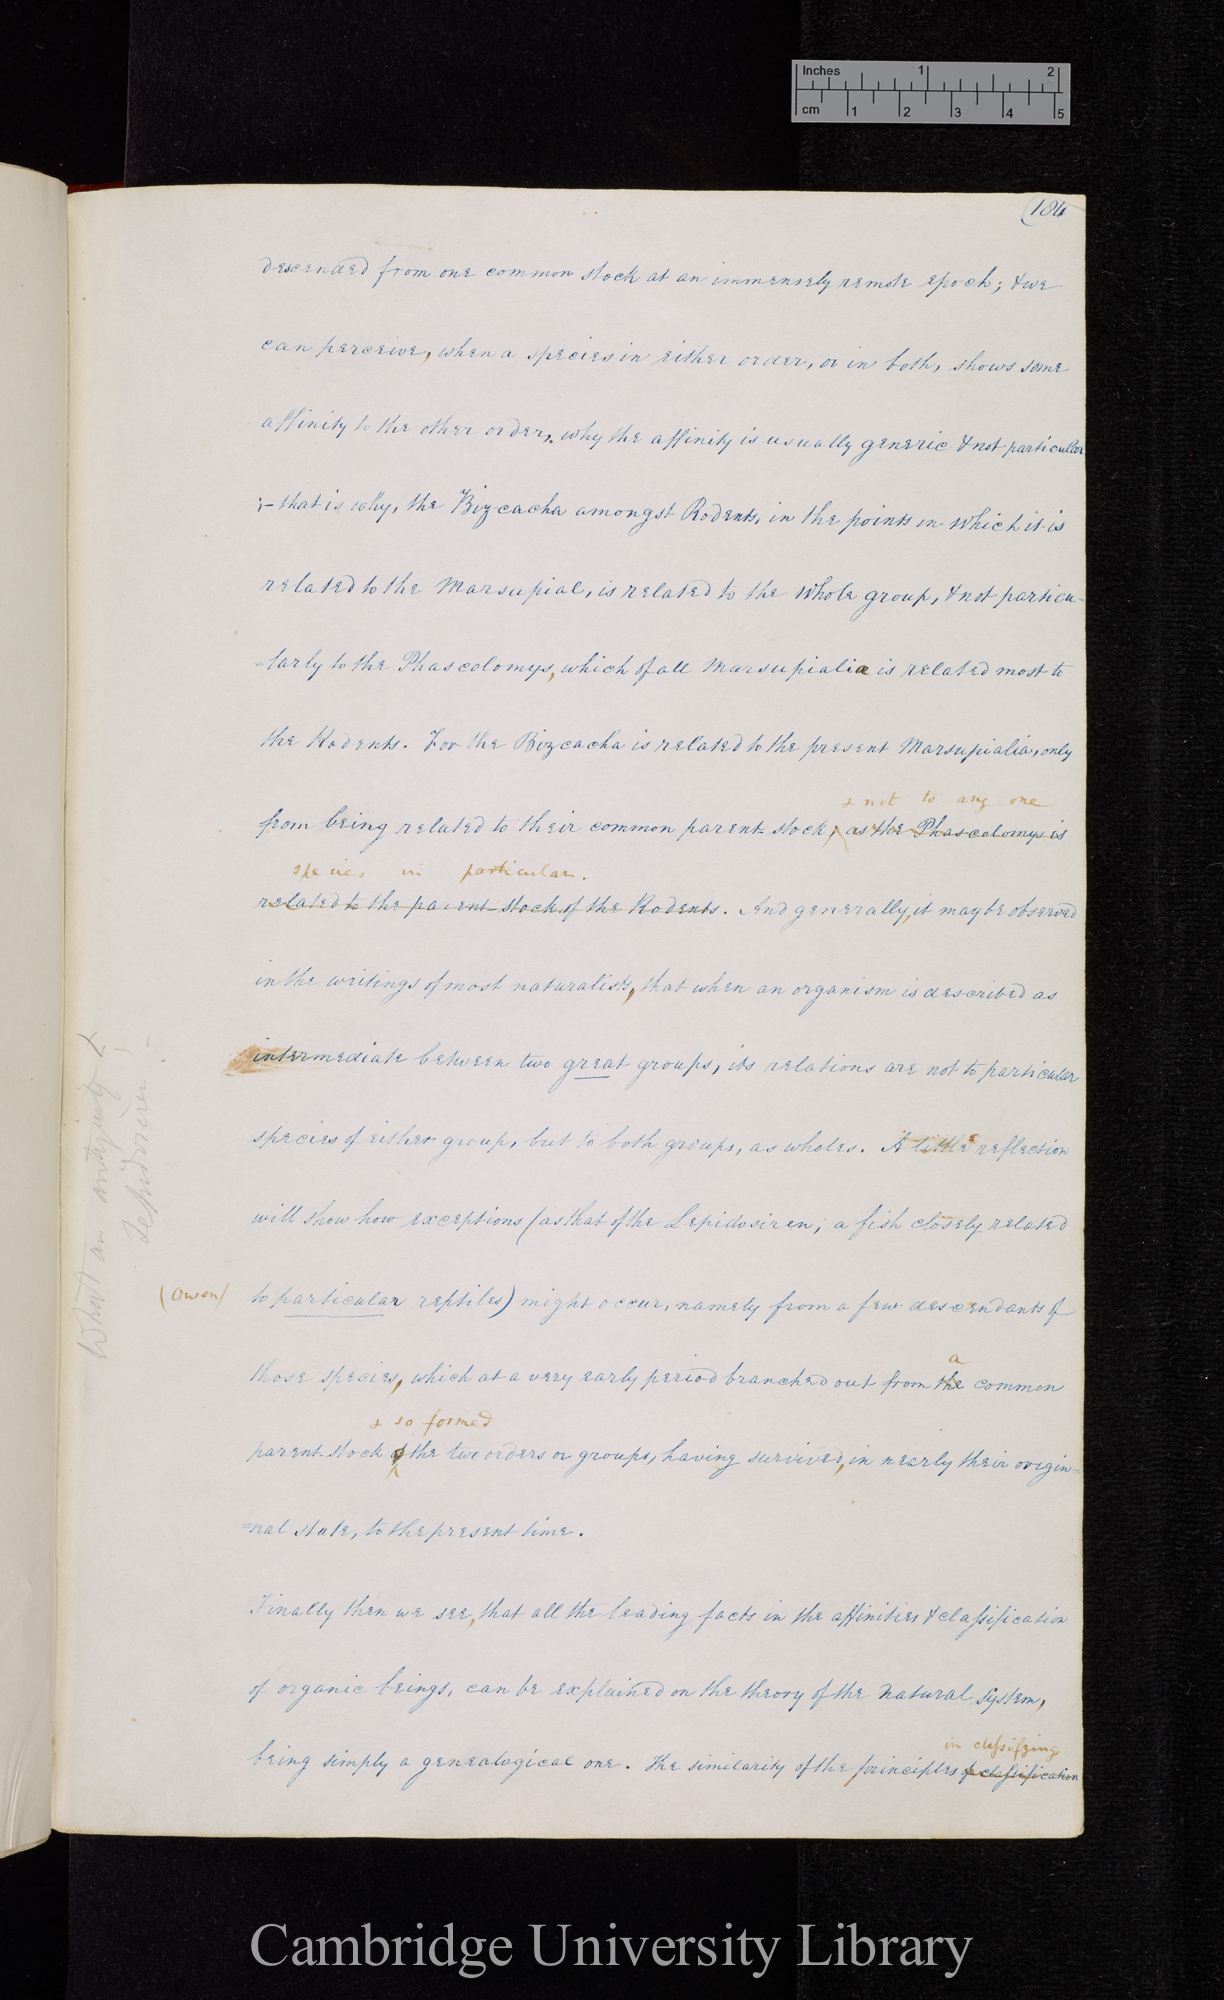 Inches 1 2
cm 1 2 3 4 5
(184
descended from one common stock at an immensely remote epoch; & we
can perceive, when a species in either order, or in both, shows some
affinity to the other order, why the affinity is usually generic & not particular
;– that is why, the Bizcacha amongst Rodents, in the points in which it is
related to the Marsupial, is related to the whole group, & not particu-
-larly to the Phascolomys, which of all Marsupialia is related most to
the Rodents. For the Bizcacha is related to the present Marsupialia, only
& not to any one
from being related to their common parent-stock, as the Phascolomys is
species in particular.
related to the parent-stock of the Rodents. And generally, it may be observed
in the writings of most naturalists, that when an organism is described as
intermediate between two great groups, its relations are not to particular
species of either group, but to both groups, as wholes. A little reflection
will show how exceptions (as that of the Lepidosiren, a fish closely related
(Owen)
to particular reptiles) might occur, namely from a few descendants of
those species, which at a very early period branched out from the common
a
& so formed
parent-stock of the two orders or groups, having survived, in nearly their origin=
=nal state, to the present time.
Finally then we see, that all the leading facts in the affinities & classification
of organic beings, can be explained on the theory of the natural system,
in classifying
being simply a genealogical one. The similarity of the principles of classification
What an antiquity of
Lepidosiren! –
Cambridge University Library